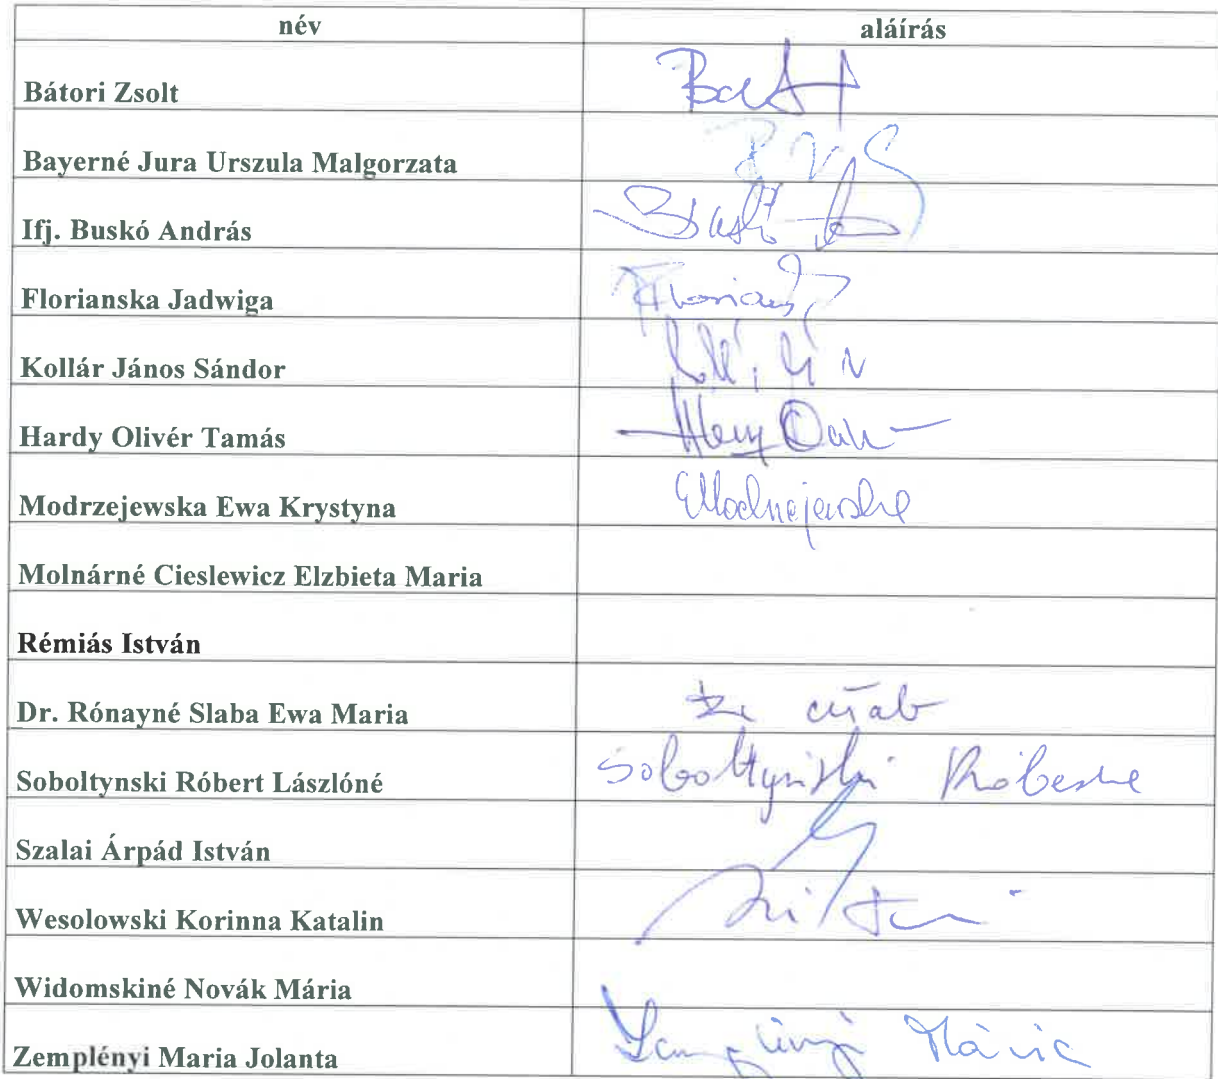 név aláírás
Bátori Zsolt
Bayerné Jura Urszula Malgorzata
Ifj. Buskó András
Florianska Jadwiga
Kollár János Sándor
Hardy Olivér Tamás
Modrzejewska Ewa Krystyna EModrzejewska
Molnárné Cieslewicz Elzbieta Maria
Rémiás István
Dr. Rónayné Slaba Ewa Maria
Soboltynski Róbert Lászlóné Soboltynski Róbertné
Szalai Árpád István
Wesolowski Korinna Katalin
Widomskiné Novák Mária
Zemplényi Maria Jolanta Zemplényi Mária